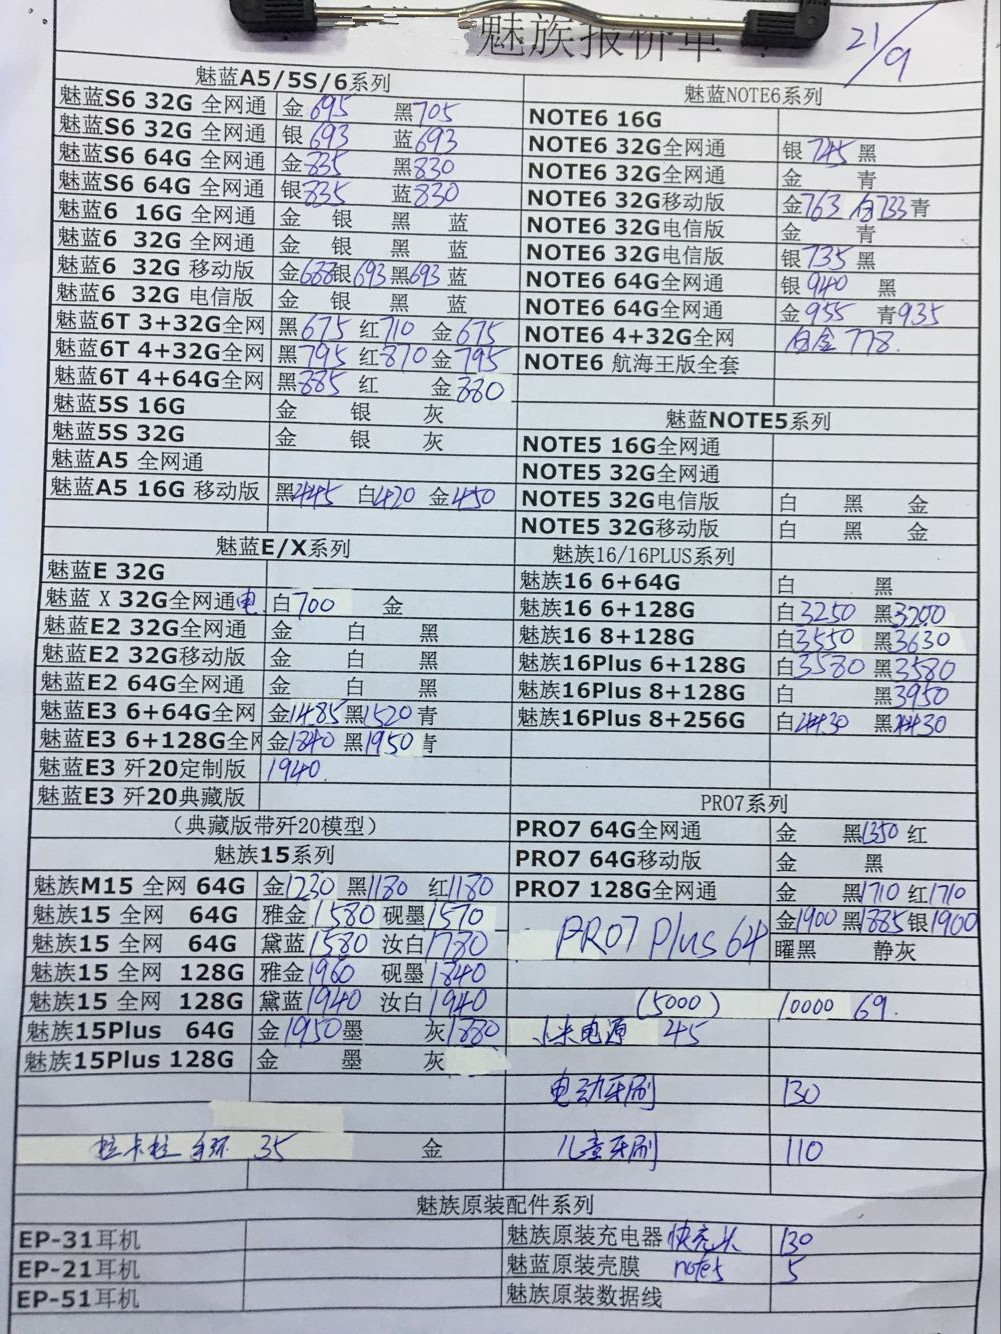 魅族报价单
21/9
魅蓝A5/5S/6系列
魅蓝S6 32G 全网通 金695 黑705
魅蓝S6 32G 全网通 银693 蓝693
魅蓝S6 64G 全网通 金835 黑830
魅蓝S6 64G 全网通 银835 蓝830
魅蓝6 16G 全网通 金 银 黑 蓝
魅蓝6 32G 全网通 金 银 黑 蓝
魅蓝6 32G 移动版 金688银693黑693蓝
魅蓝6 32G 电信版 金 银 黑 蓝
魅蓝6T 3+32G全网 黑675 红710 金675
魅蓝6T 4+32G全网 黑795 红870 金795
魅蓝6T 4+64G全网 黑885 红 金880
魅蓝5S 16G 金 银 灰
魅蓝5S 32G 金 银 灰
魅蓝A5 全网通
魅蓝A5 16G 移动版 黑445 白420 金450
魅蓝E/X系列
魅蓝E 32G
魅蓝 X 32G全网通电 白700 金
魅蓝E2 32G全网通 金 白 黑
魅蓝E2 32G移动版 金 白 黑
魅蓝E2 64G全网通 金 白 黑
魅蓝E3 6+64G全网 金1485黑1520青
魅蓝E3 6+128G全网 金1840 黑1950青
魅蓝E3 歼20定制版 1940.
魅蓝E3 歼20典藏版
（典藏版带歼20模型）
魅族15系列
魅族M15 全网 64G 金1230 黑1180 红1180
魅族15 全网 64G 雅金1580 砚墨1570
魅族15 全网 64G 黛蓝1580 汝白1780
魅族15 全网 128G 雅金1960 砚墨1840
魅族15 全网 128G 黛蓝1940 汝白1940
魅族15Plus 64G 金1950墨 灰1880
魅族15Plus 128G 金 墨 灰
拉卡拉 手环 35 金
魅蓝NOTE6系列
NOTE6 16G
NOTE6 32G全网通 银745黑
NOTE6 32G全网通 金 青
NOTE6 32G移动版 金763 白733青
NOTE6 32G电信版 金 青
NOTE6 32G电信版 银735黑
NOTE6 64G全网通 银940 黑
NOTE6 64G全网通 金955 青935
NOTE6 4+32G全网 白金 778.
NOTE6 航海王版全套
魅蓝NOTE5系列
NOTE5 16G全网通
NOTE5 32G全网通
NOTE5 32G电信版 白 黑 金
NOTE5 32G移动版 白 黑 金
魅族16/16PLUS系列
魅族16 6+64G 白 黑
魅族16 6+128G 白3250 黑3200
魅族16 8+128G 白3550 黑3630
魅族16Plus 6+128G 白3580 黑3580
魅族16Plus 8+128G 白 黑3950
魅族16Plus 8+256G 白4430 黑4430
PRO7系列
PRO7 64G全网通 金 黑1350 红
PRO7 64G移动版 金 黑
PRO7 128G全网通 金 黑1710 红1710
PRO7 Plus 64 金1900 黑1885银1900
曜黑 静灰
(5000) 10000 69.
小米电源 45
电动牙刷 130
儿童牙刷 110
魅族原装配件系列
EP-31耳机 魅族原装充电器 快充头 130
EP-21耳机 魅蓝原装壳膜 note5 5
EP-51耳机 魅族原装数据线